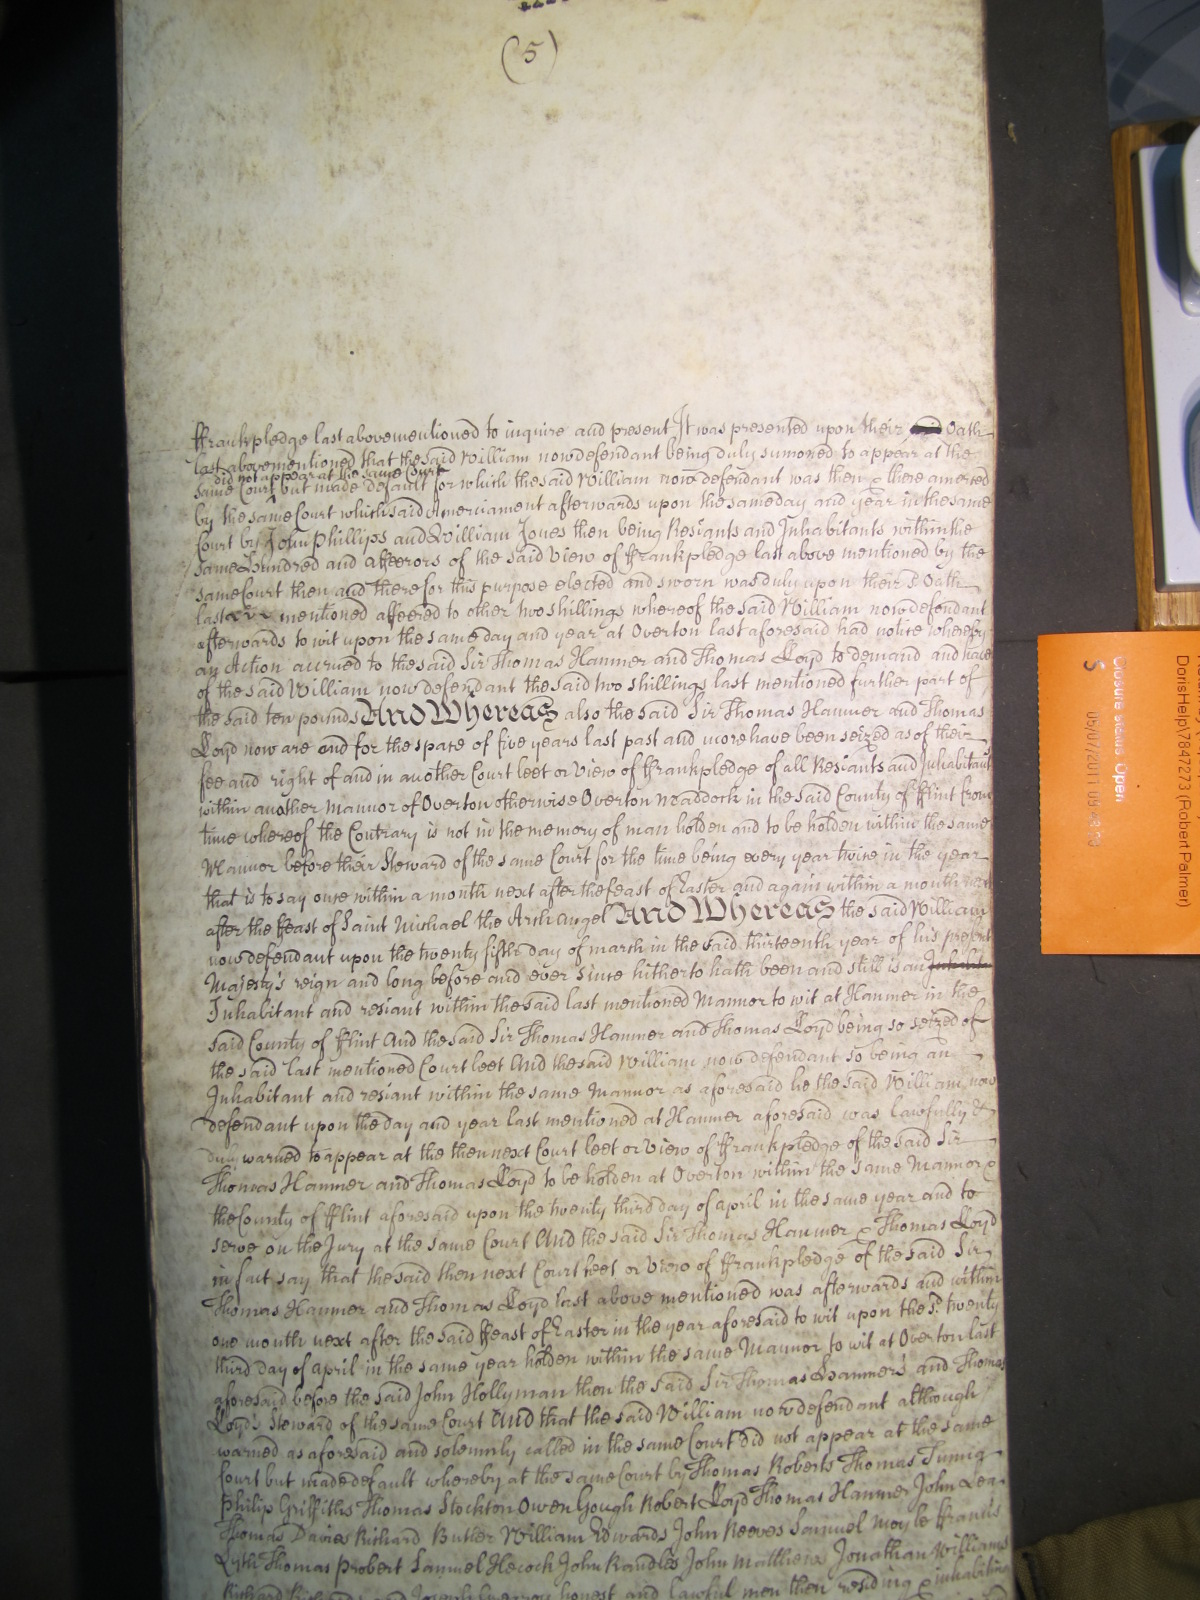 (5)
ffrankpledge last abovementioned to inquire and present It was presented upon their said Oath
last abovementioned that the said William now defendant being duly sumoned to appear at the
did not appear at the same Court
same Court but made default for which the said William now defendant was then & there amerced
by the same Court which said Amerciament afterwards upon the same day and year in the same
Court by John Phillips and William Jones then being Resiants and Inhabitants within the
same Hundred and affeerors of the said View of ffrankpledge last above mentioned by the
same Court then and there for this purpose elected and sworn was duly upon their Oath
last mentioned affeered to other two shillings whereof the said William now defendant
afterwards to wit upon the same day and year at Overton last aforesaid had notice whereby
an Action accrued to the said Sir Thomas Hanmer and Thomas Lloyd to demand and have
of the said William now defendant the said two shillings last mentioned further part of
the said ten pounds And Whereas also the said Sir Thomas Hanmer and Thomas
Lloyd now are and for the space of five years last past and more have been seized as of their
fee and right of and in another Court leet or View of ffrankpledge of all Resiants and Inhabitants
within another Mannor of Overton otherwise Overton Maddock in the said County of fflint from
time whereof the Contrary is not in the memory of man holden and to be holden within the same
Mannor before their Steward of the same Court for the time being every year twice in the year
that is to say once within a month next after the feast of Easter and again within a month next
after the ffeast of Saint Michael the Arch angel And Whereas the said William
now defendant upon the twenty fifth day of march in the said thirteenth year of his present
Majesty's reign and long before and ever since hitherto hath been and still is an
Inhabitant and resiant within the said last mentioned Mannor to wit at Hanmer in the
said County of fflint And the said Sir Thomas Hanmer and Thomas Lloyd being so seized of
the said last mentioned Court leet And the said William now defendant so being an
Inhabitant and resiant within the same Mannor as aforesaid he the said William now
defendant upon the day and year last mentioned at Hanmer aforesaid was lawfully &
duly warned to appear at the then next Court leet or View of ffrankpledge of the said Sir
Thomas Hanmer and Thomas Lloyd to be holden at Overton within the same Mannor &
the County of fflint aforesaid upon the twenty third day of april in the same year and to
serve on the Jury at the same Court And the said Sir Thomas Hanmer & Thomas Lloyd
in fact say that the said then next Court leet or View of ffrankpledge of the said Sir
Thomas Hanmer and Thomas Lloyd last above mentioned was afterwards and within
one month next after the said ffeast of Easter in the year aforesaid to wit upon the sd. twenty
third day of april in the same year holden within the same Mannor to wit at Overton last
aforesaid before the said John Hollyman then the said Sir Thomas Hanmer's and Thomas
Lloyd's Steward of the same Court And that the said William now defendant although
warned as aforesaid and solemnly called in the same Court did not appear at the same
Court but made default whereby at the same Court by Thomas Roberts Thomas
Philip Griffiths Thomas Stockton Owen Gough Robert Lloyd Thomas Hanmer John
Thomas Davies Richard Butler William Edwards John Reeves Samuel Moyle ffrancis
Lyth Thomas Probert Samuel Hecock John Randles John Matthews Jonathan Williams
Richard and Joseph honest and lawful men then residing & inhabiting
Closure status Open
05/07/2011
5
DorisHelp\7847273 (Robert Palmer)